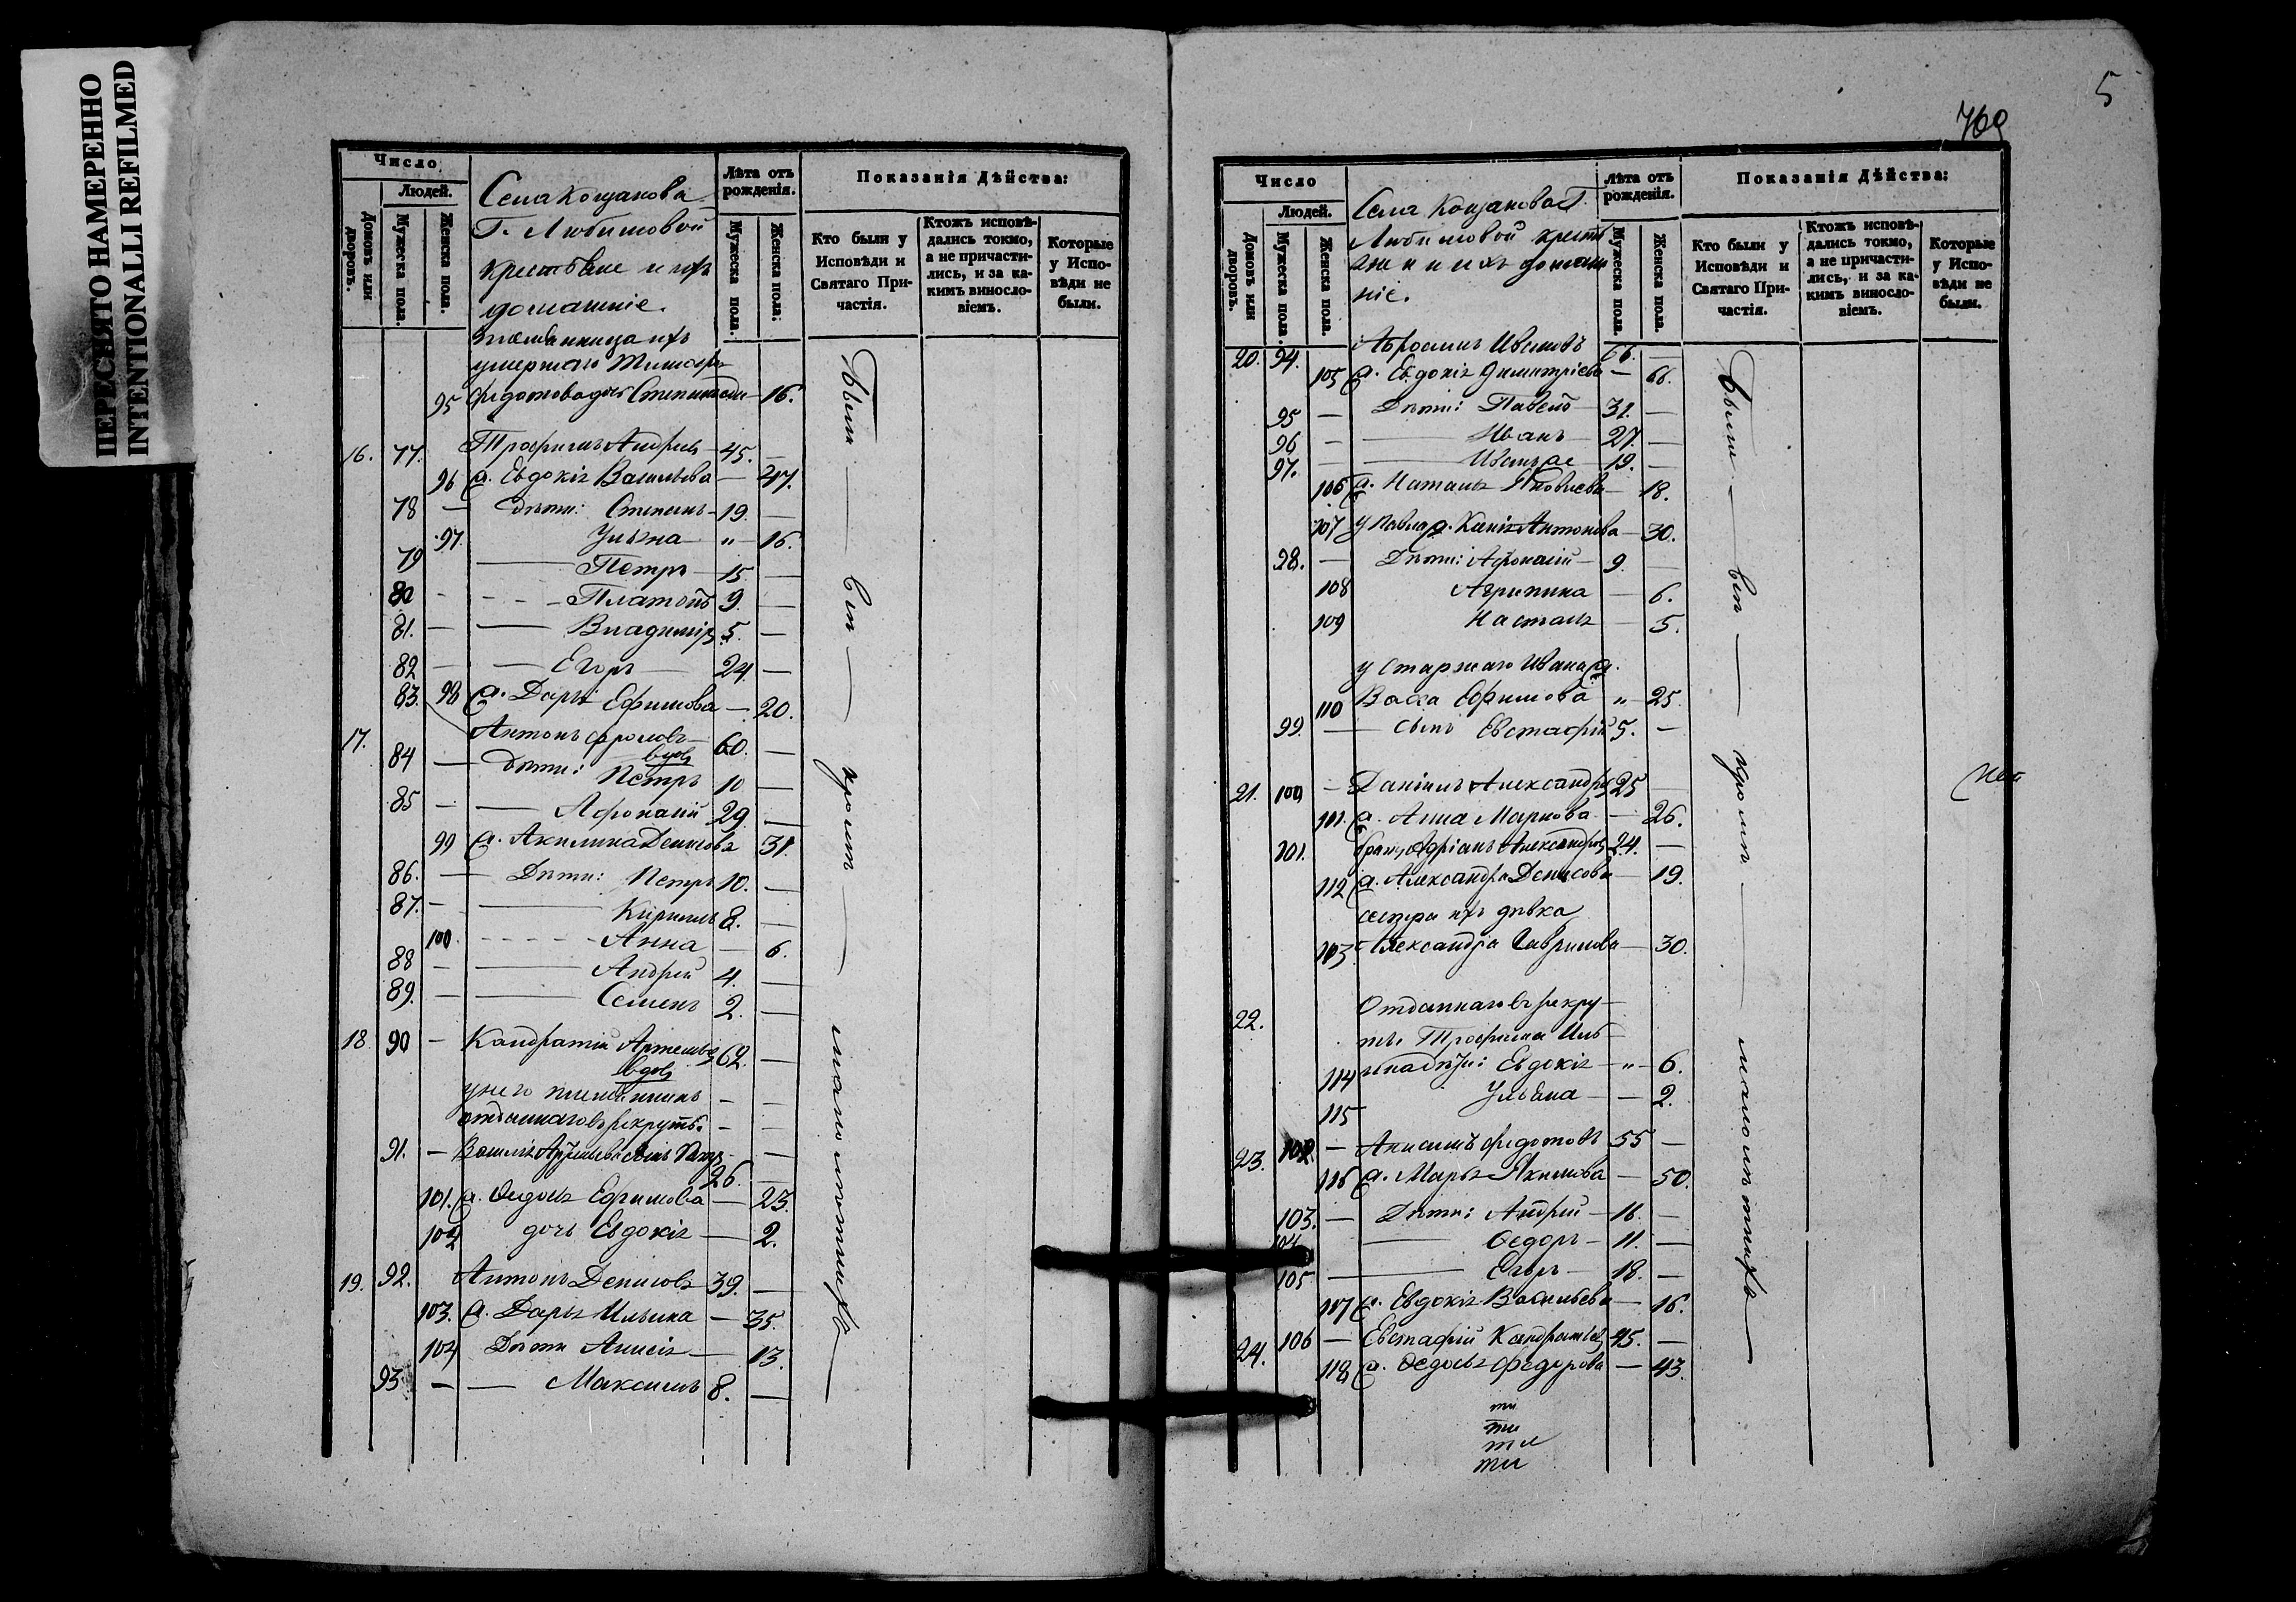 ПЕРЕСНЯТО НАМЕРЕННО
INTENTIONALLI REFILMED
Число
Людей.
Домовъ или дворовъ.
Мужеска пола.
Женска пола.
Села Кощакова
Г. Любимовой
крестьяне и ихъ
домашніе.
Лѣта отъ рожденія.
Мужеска пола.
Женска пола:
Показанія Дѣйства:
Кто были у Исповѣди и Святаго Причастія.
Ктожъ исповѣдались токмо, а не причастились, и за какимъ винословіемъ.
Которые у Исповѣди не были.
умершаго
95 16.
16. 77. Трофимъ Андреевъ 45. —
96 ж. Евдокія Васильева — 47.
78 — Дѣти: Степанъ 19. —
97. Ульяна „ 16.
79 Петръ 15. —
80 - Платонъ 9. —
81. — Владиміръ 5. —
82 — Егоръ 24. —
83. 98 ж. Дарья Ефимова — 20.
17. Антонъ Фроловъ 60. —
вдовъ
84 — Дѣти: Петръ 10 —
85 — Афонасій 29. —
99 ж. Акилина Денисова 31.
86. — Дѣти: Петръ 10. —
87. — Кирилъ 8. —
100. Анна — 6.
88 — Андрей 4. —
89. — Семенъ 2. —
18. 90 — Кандратій Артемьевъ 62. —
вдовъ
у него племянникъ — —
отданнаго въ рекруты — —
91. — 26. —
101. ж. Федосья Ефимова — 23.
102 дочь Евдокія — 2.
19. 92. Антонъ Денисовъ 39. —
103. ж. Дарья Ильина — 35.
104 Дѣти Анисія — 13.
93 — — Максимъ 8. —
Были — вси — кромѣ — малолѣтнихъ —
5
769
Число
Людей.
Домовъ или дворовъ.
Мужеска пола.
Женска пола.
Села Кощакова Г.
Любимовой кресть
яне и ихъ домаш
ніе.
Лѣта отъ рожденія.
Мужеска пола.
Женска пола.
Показанія Дѣйства:
Кто были у Исповѣди и Святаго Причастія.
Ктожъ исповѣдались токмо, а не причастились, и за какимъ винословіемъ.
Которые у Исповѣди не были.
20. 94. Ивановъ 66. —
105 ж. Евдокія Димитріева — 66.
95 — Дѣти: Павелъ 31. —
96 — Иванъ 27. —
97. — Иванъ же 19. —
106 ж. Наталья Яковлева 18.
107 у Павла ж. Ксенія Антонова — 30.
98. — Дѣти: Афонасій 9. —
108 Агрипина — 6.
109 Настасья — 5.
у старшаго Ивана ж.
110 Васса Ефимова „ 25.
99. — сынъ Евстафій 5. —
21. 100 — Даніилъ Александровъ 25 —
101. ж. Анна Маркова — 26.
101. братъ Адріанъ Александровъ 24. —
112 ж. Александра Денисова — 19.
сестра ихъ дѣвка
103 Александра Гаврилова — 30.
22. Отданнаго въ рекру
ты Трофима Иль
114 ина дѣти: Евдокія „ 6.
115 Ульяна — 2.
23. 102. — Анисимъ Федотовъ 55 —
116 ж. Марья Якимова — 50.
103. — Дѣти: Андрей 16. —
104 Ѳедоръ 11. —
105 — Егоръ 18. —
117 ж. Евдокія Васильева — 16.
24. 106 — Евстафій Кандратьевъ 45. —
118 ж. Ѳедосья Федорова — 43.
ти
ти
ти
ти
Были — вси — кромѣ — малолѣтнихъ —